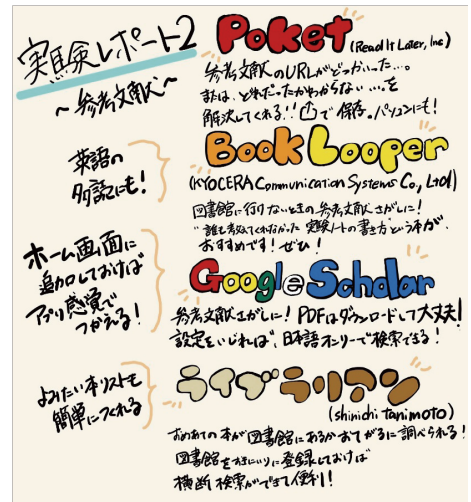 実験レポート2
〜参考文献〜
Poket (Read It Later, Inc)
参考文献のURLがどっかいった…。
または、どれだったかわからない…。を
解決してくれる!! で保存。パソコンにも!
英語の
多読にも!
Book Looper
(KYOCERA Communication Systems Co., Ltd)
図書館に行けないときの参考文献さがしに!
"誰も教えてくれなかった実験ノートの書き方"という本が、
おすすめです!ぜひ!
ホーム画面に
追加しておけば
アプリ感覚で
つかえる!
Google Scholar
参考文献さがしに! PDFはダウンロードして大丈夫!
設定をいじれば、日本語オンリーで検索できる!
よみたい本リストも
簡単につくれる
ライブラリアン
(shinichi tanimoto)
おめあての本が図書館にあるかおてがるに調べられる!
図書館をおきにいりに登録しておけば
横断検索ができて便利!